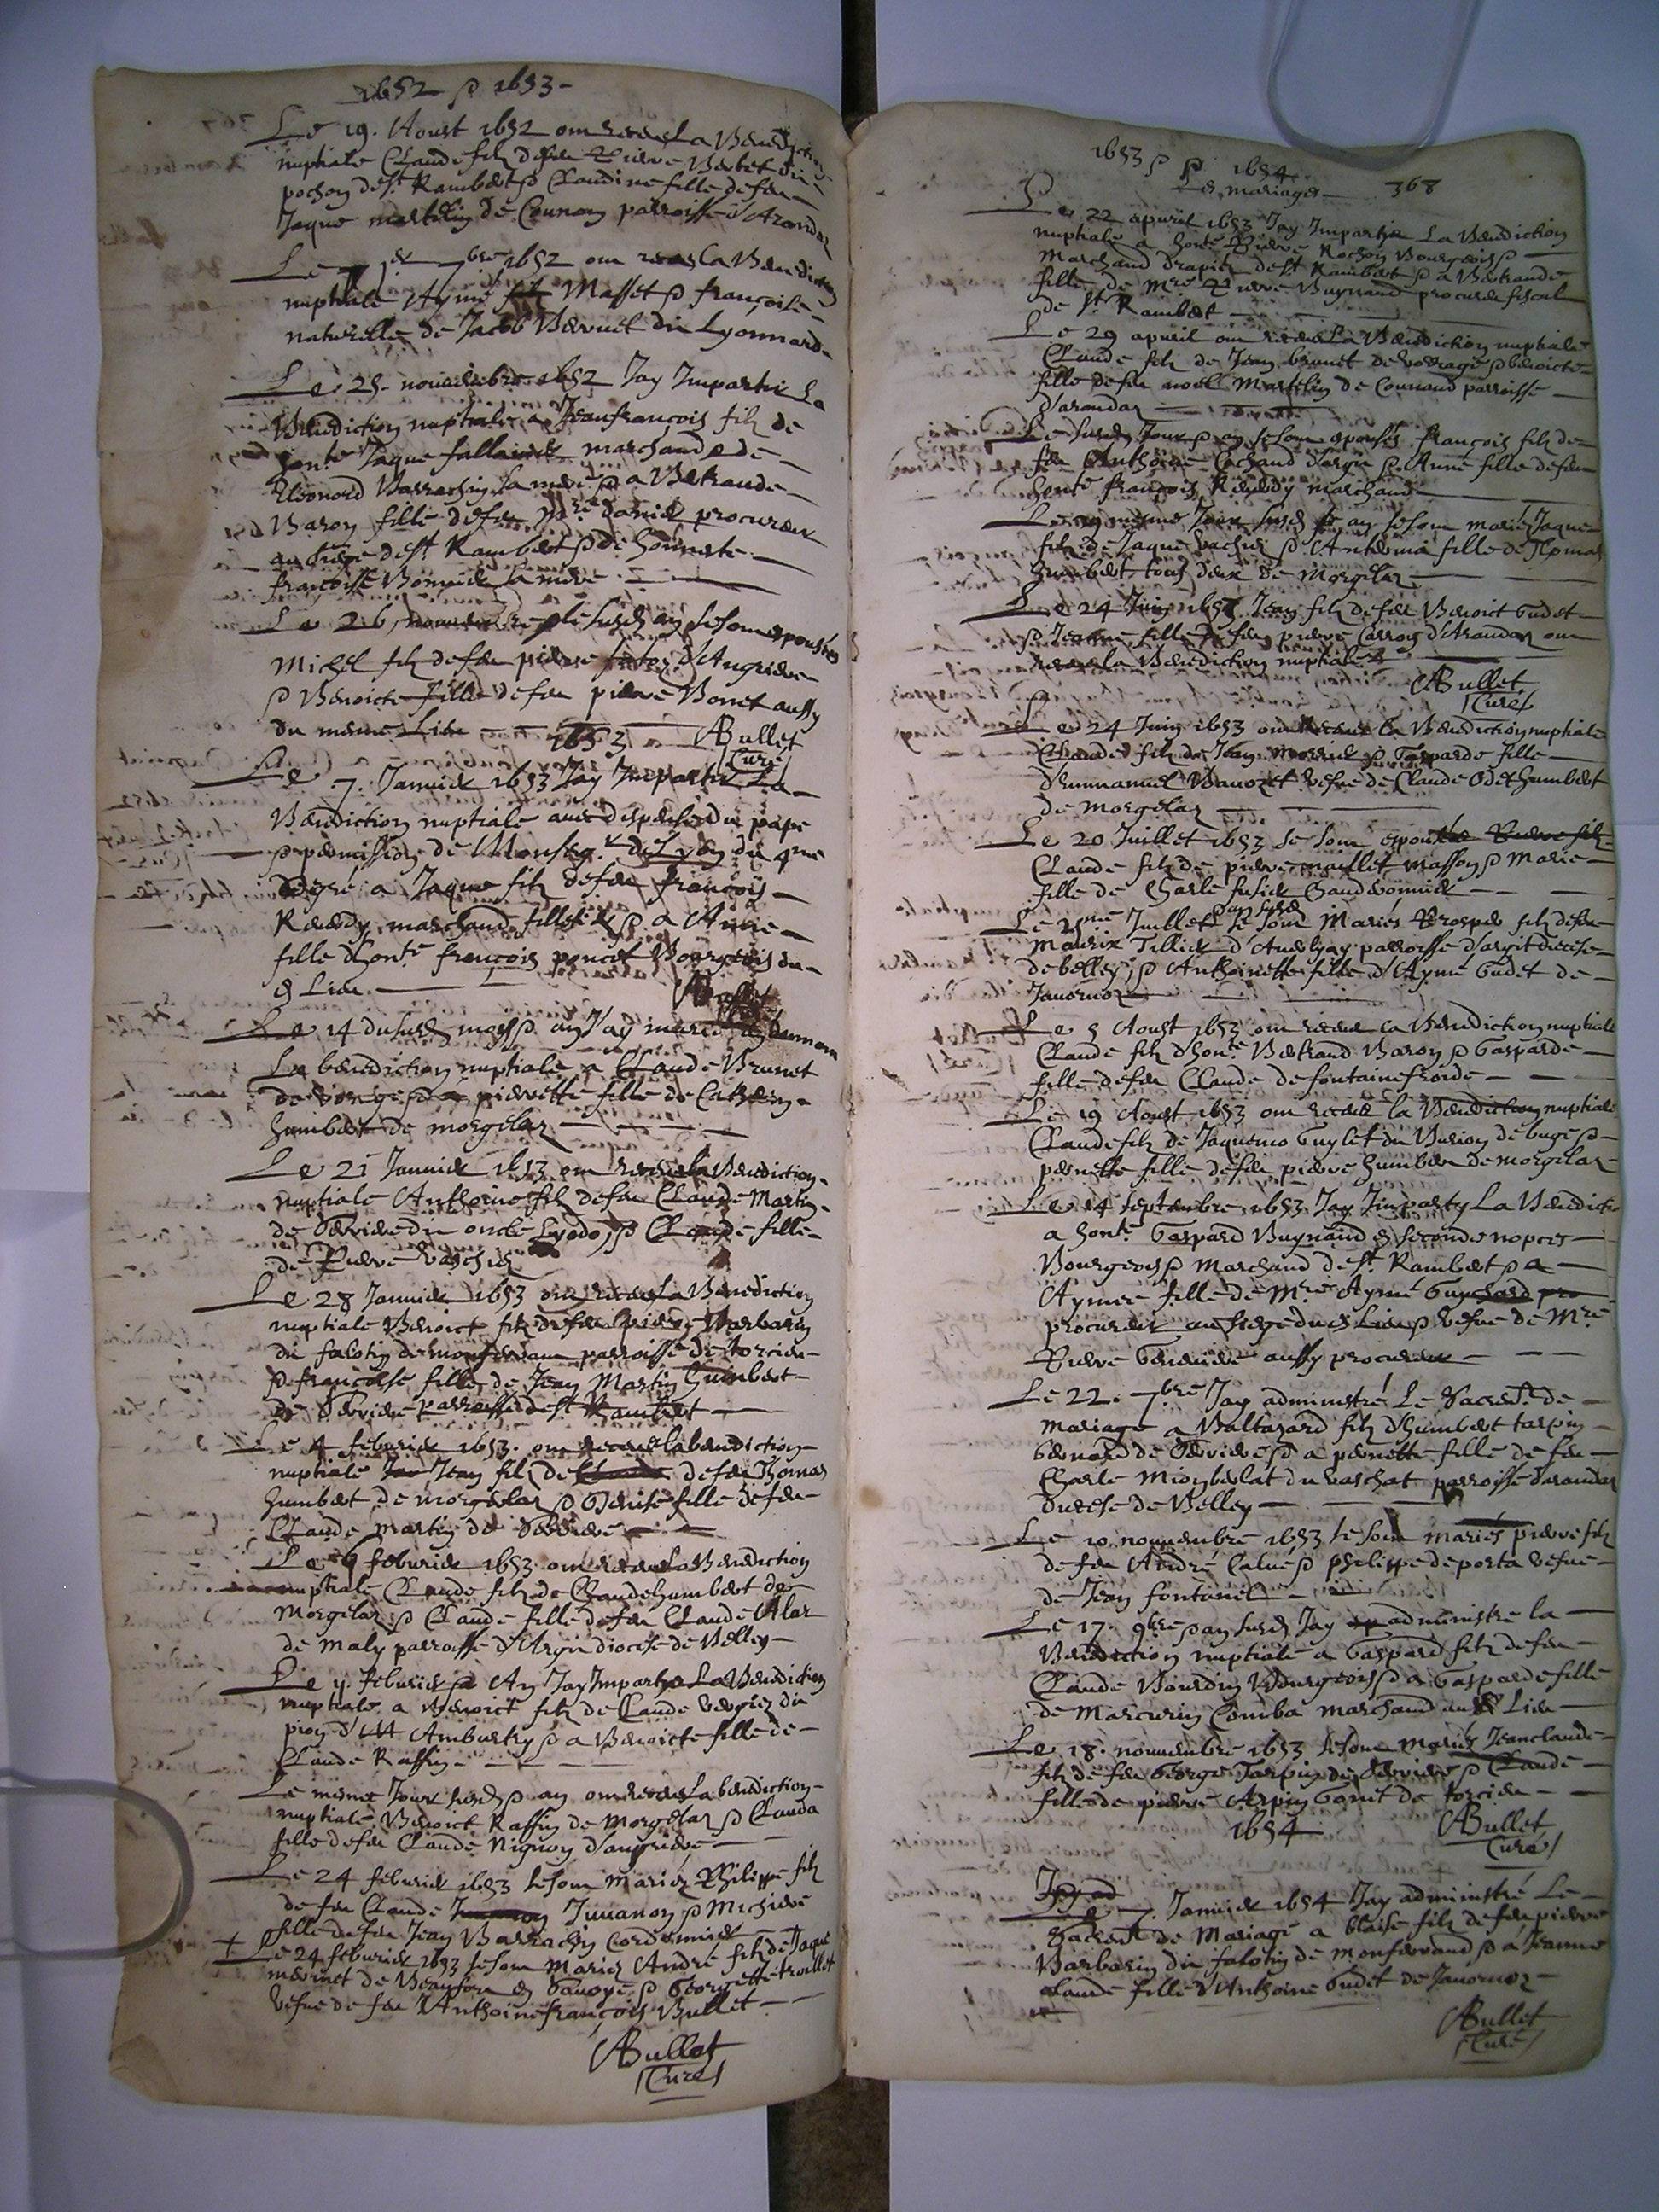 1652 & 1653
Le 19. Aoust 1652 ont receu La Benediction
nuptiale Claude filz de feu Pierre Berbet dit
pochon de St Rambert & Claudine fille de feu
Jaque martelin de Counan parroisse d'Arandaz
Le 1er 7bre 1652 ont receu la Benediction
nuptiale Aymé filz Masset & françoise
naturelle de Jacob Bernet dit Lyonnard
Le 25. nouembre 1652 Jay Imparti La
Benediction nuptiale a Jeanfrancois filz de
honte Jaque fallauier marchand & de
Eleonord Barrachin sa mere & a Bertrande
Baron fille de feu Mre daniel procureur
au siege de St Rambert & de honneste
françoise Bonnier sa mere
Le 26 nouembre susd an se sont espousés
Michel filz de feu pierre d'Angrieres
& Benoicte fille de feu pierre Bonet aussy
du mesme Lieu
1653 ABullet
Curé
Le 7. Januier 1653 Jay Imparti La
Benediction nuptiale auec dispense du pape
& permission de Monseigr de Lyon du 4me
degré a Jaque filz de feu françois
Reuerdy marchand & a Anne
fille d'honte françois poncet Bourgeois du
d Lieu
ABullet
Le 14 du susd moys & an J'ay
La benediction nuptiale a Claude Brunet
de & a pierrette fille de Cathelin
humbert de morgelaz
Le 21 Januier 1653 ont receu la Benediction
nuptiale Anthoine filz de feu Claude Martin
de Serriere dit oncle & Claude fille
de Pierre Vaschier
Le 28 Januier 1653 ont receu La Benediction
nuptiale Benoict filz de feu pierre Barbarin
dit falotin de monferrant parroisse de torcieu
& francoise fille de Jean Martin humbert
de Serriere parroisse de St Rambert
Le 4 feburier 1653. ont receu la benediction
nuptiale Jean filz de de feu Thomas
humbert de morgelaz & Denise fille de feu
Claude Martin de Serriere
Le 6 feburier 1653. ont receu La Benediction
nuptiale Claude filz de Claude humbert de
Morgelaz & Claude fille de feu Claude Alar
de Maly parroisse d'Argis diocese de Belley
Le feburier & An Jay Imparty La Benediction
nuptiale a Benoict filz de Claude dit
d'Ambutrix & a Benoicte fille de
Claude Raffin
Le mesme Jour susd & an ont receu La benediction
nuptiale Benoict Raffin de Morgelaz & Clauda
fille de feu Claude d'angrieres
Le 24 feburier 1653 se sont mariez Philippe filz
de feu Claude Juuanon & Michiere
fille de feu Jean Barrachin Cordonnier
+ Le 24 feburier 1653 se sont Mariez André filz de Jaque
mermet de Beaufort en Sauoye & Georgette trollet
Vefue de feu Anthoinefrançois Bullet
ABullet
Curé
1653 & 1654
Les mariages 368
Le 22 apuril 1653 Jay Imparty La Benediction
nuptiale a honte Pierre Rochon Bourgeois &
Marchand drapier de St Rambert & a Bertrande
fille de Mre Pierre Buynand procureur fiscal
de St Rambert
Le 29 apuril ont receu La Benediction nuptiale
Claude filz de Jean brunet de & benoicte
fille de feu noel Martelin de Counand parroisse
d'arandaz
Le susd Jour & an se sont espousés françois filz de
feu Anthoine Cachand d'argis & Anne fille de feu
honte françois Reuerdy marchand
Le mesme Jour susd & an se sont mariés Jaque
filz de Jaque Vachier & Anthermia fille de Thomas
humbert tous deux de Morgelaz
Le 24 Juin 1653 Jean filz de feu Benoict Gudet
& Jeanne fille de feu pierre Carron d'Arandaz ont
receu la Benediction nuptiale
ABullet
Curé
Le 24 Juin 1653 ont Receu la Benediction nuptiale
Claude filz de Jean Morrier & Gasparde fille
d'Emmanuel Bauozet Vefue de Claude Odet humbert
de Morgelaz
Le 20 Juillet 1653 se sont espousés Pierre filz
Claude filz de pierre maillet masson & Marie
fille de Charle fusier Chaudronnier
Le Juillet & an susd se sont Mariés Prosper filz de feu
Maurix Tillier d'Auerlyaz parroisse d'argit diocese
de belley & Anthoinette fille d'Aymé Gudet de
Jauornoz
Le 5 Aoust 1653 ont receu la Benediction nuptiale
Claude filz d'honte Bertrand Baron & Gasparde
fille de feu Claude de fontainefroide
Le 19 Aoust 1653 ont receu la Benediction nuptiale
Claude filz de Jaquemo Guylet du de buge &
pernette fille de feu pierre humbert de morgelaz
Le 14 septembre 1653 Jay Imparty La Benedictio
a honte Gaspard Buynand en secondes nopces
Bourgeois & Marchand de St Rambert & a
Aymée fille de Mre Aymé Guychard pro
procureur au siege dud Lieu & Vefue de Mre
Pierre aussy procureur
Le 22. 7bre Jay administré Le Sacret de
Mariage a Baltazard filz d'humbert tarpin
bernard de Serriere & a pernette fille de feu
Charle Midyberlat du Vaschat parroisse d'arandaz
diocese de Belley
Le 10 nouuembre 1653 se sont mariés pierre filz
de feu André Caluet & philippe de porta Vefue
de Jean fontanel
Le 17. 9bre & an susd Jay administré la
Benediction nuptiale a Gaspard filz de feu
Claude Bourdin Bourgeois & a Gasparde fille
de Marcurin Comba marchand aud Lieu
Le 18. nouuembre 1653 se sont Mariés Jeanclaude
filz de feu George Tarpin de Serriere & Claude
fille de pierre Arpin Gonet de torcieu
1654 ABullet
Curé
Jay ad
Le 7. Januier 1654 Jay administré Le
Sacret de Mariage a blaise filz de feu pierre
Barbarin dit falotin de Monferrand & a Jeanne
Claude fille d'Anthoine Gudet de Jauornoz
ABullet
Curé